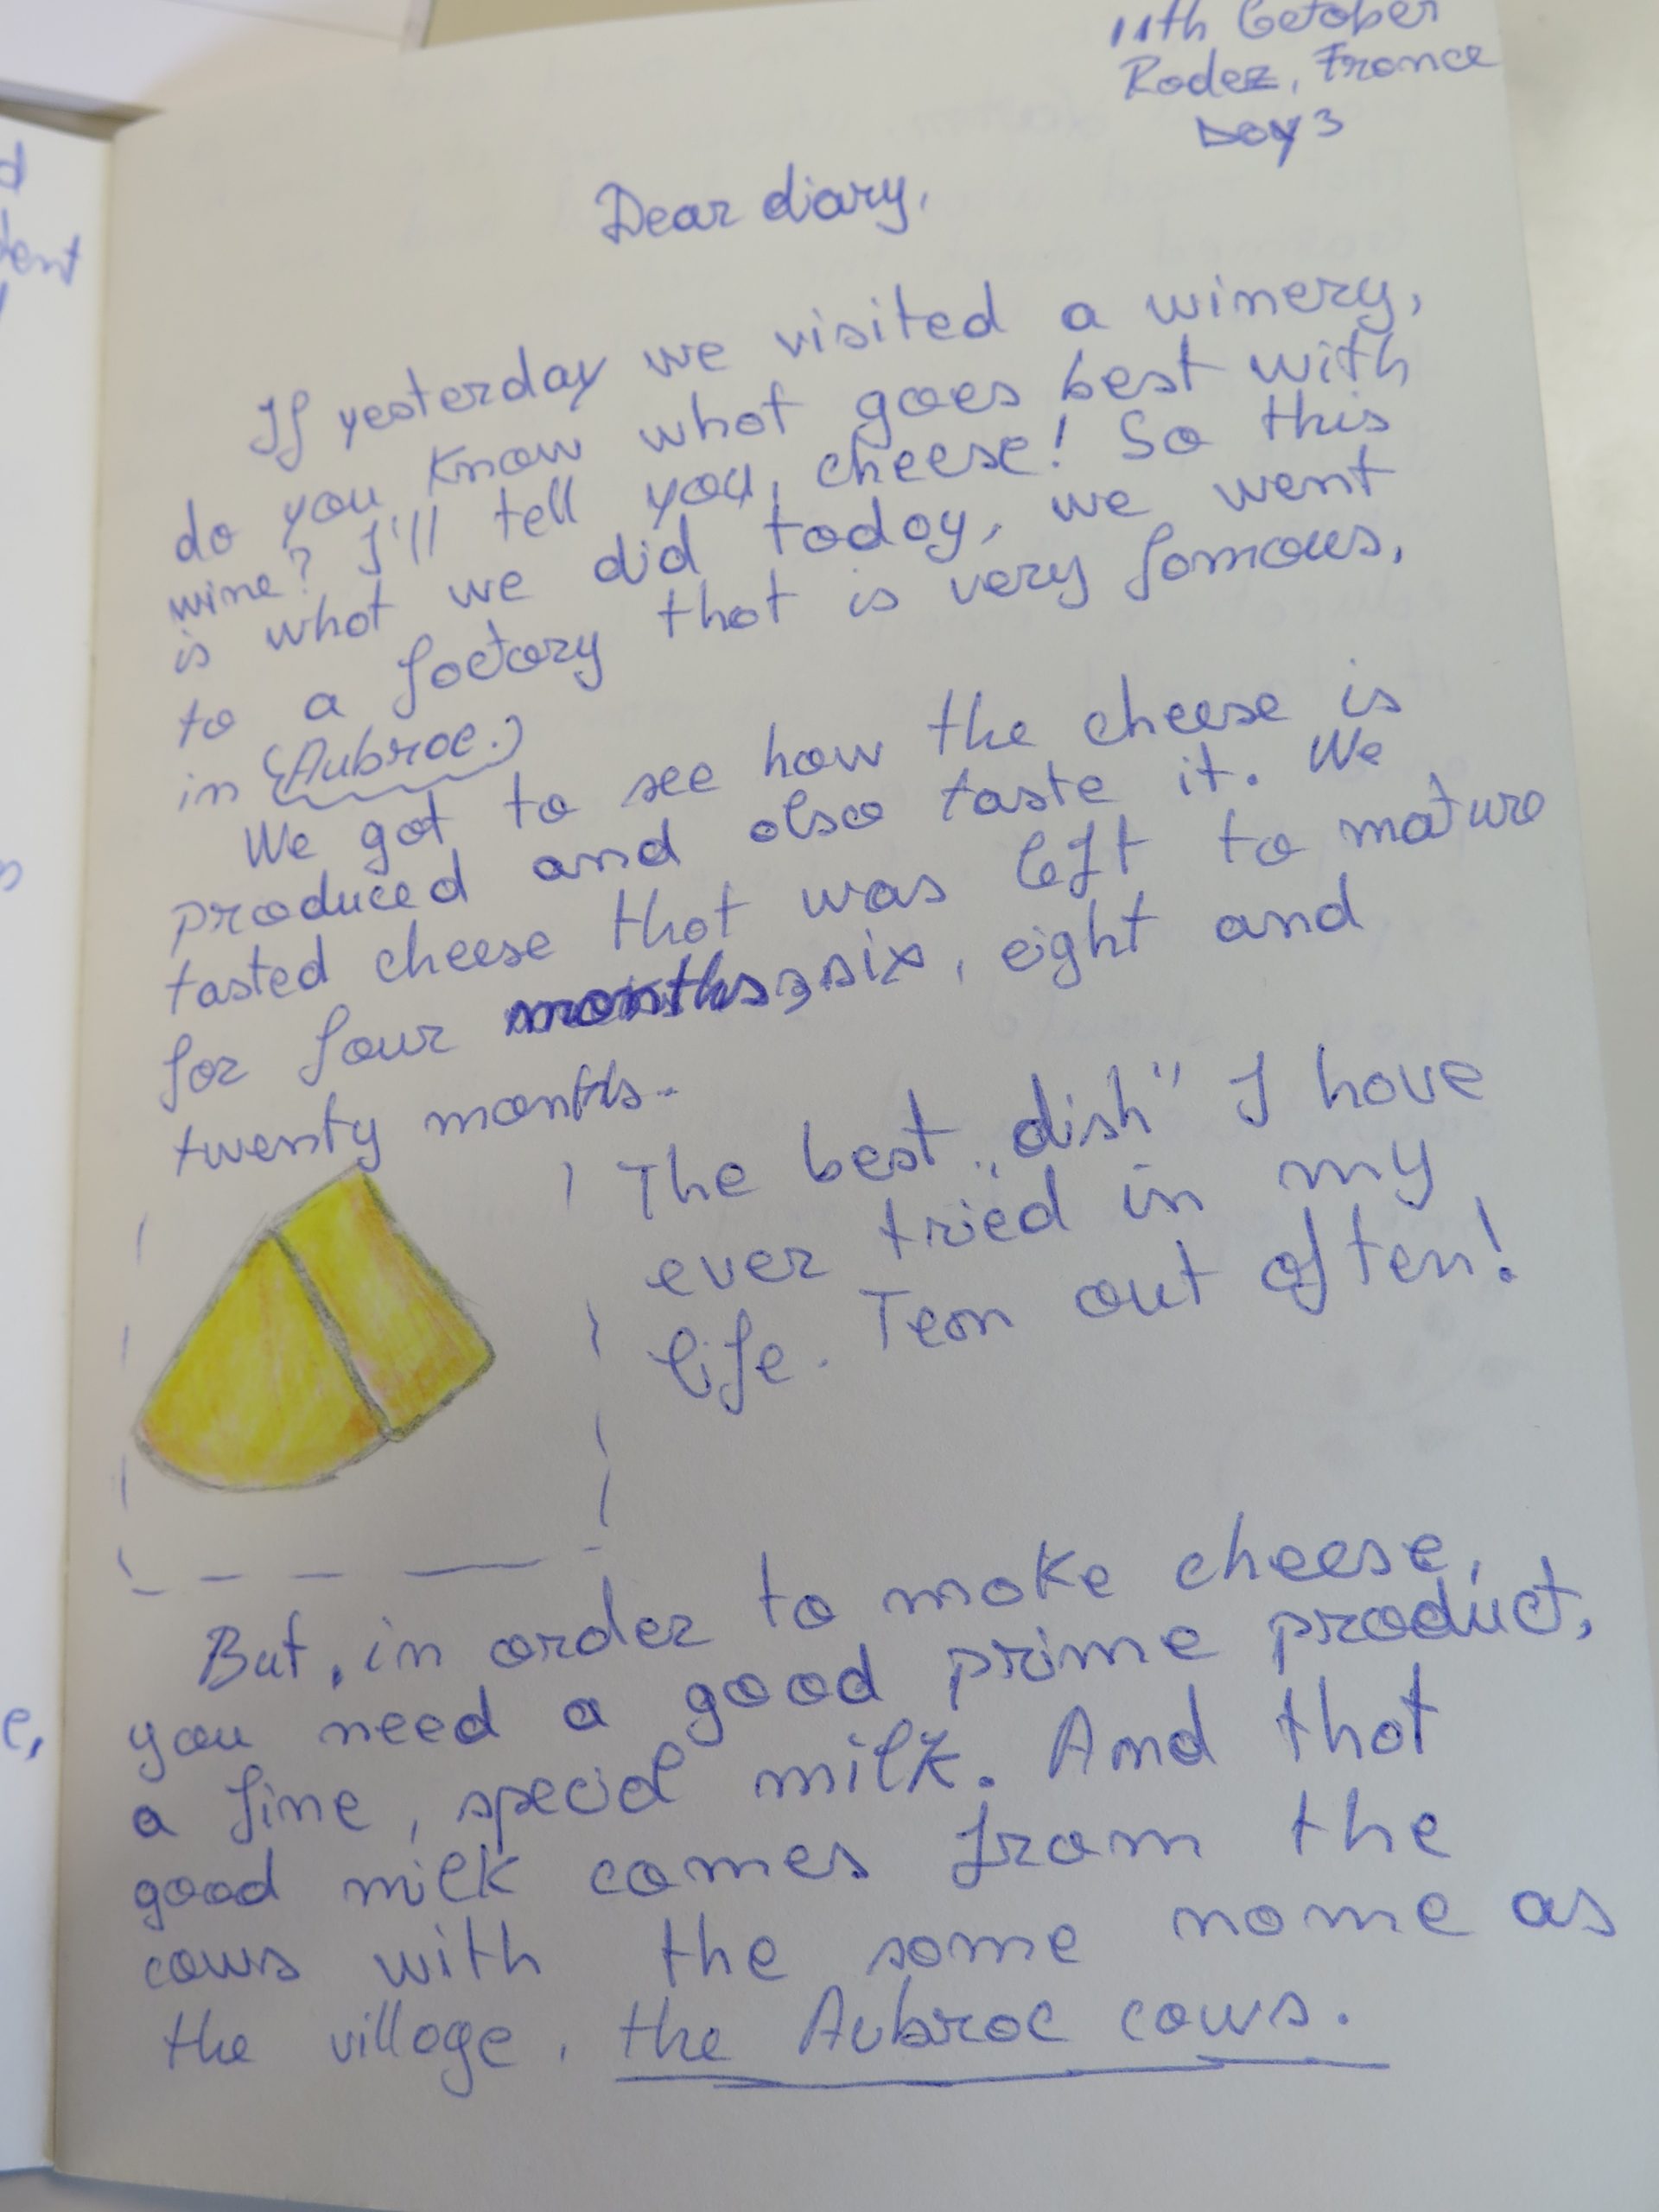 d
dent
e,
11th October
Rodez, France
Day 3
Dear diary,
If yesterday we visited a winery,
do you know what goes best with
wine? I'll tell you, cheese! So this
is what we did today, we went
to a factory that is very famous,
in Aubrac.
We got to see how the cheese is
produced and also taste it. We
tasted cheese that was left to mature
for four months, six, eight and
twenty months.
The best „dish" I have
ever tried in my
life. Ten out of ten!
But, in order to make cheese,
you need a good prime product,
a fine, special milk. And that
good milk comes from the
cows with the same name as
the village, the Aubrac cows.